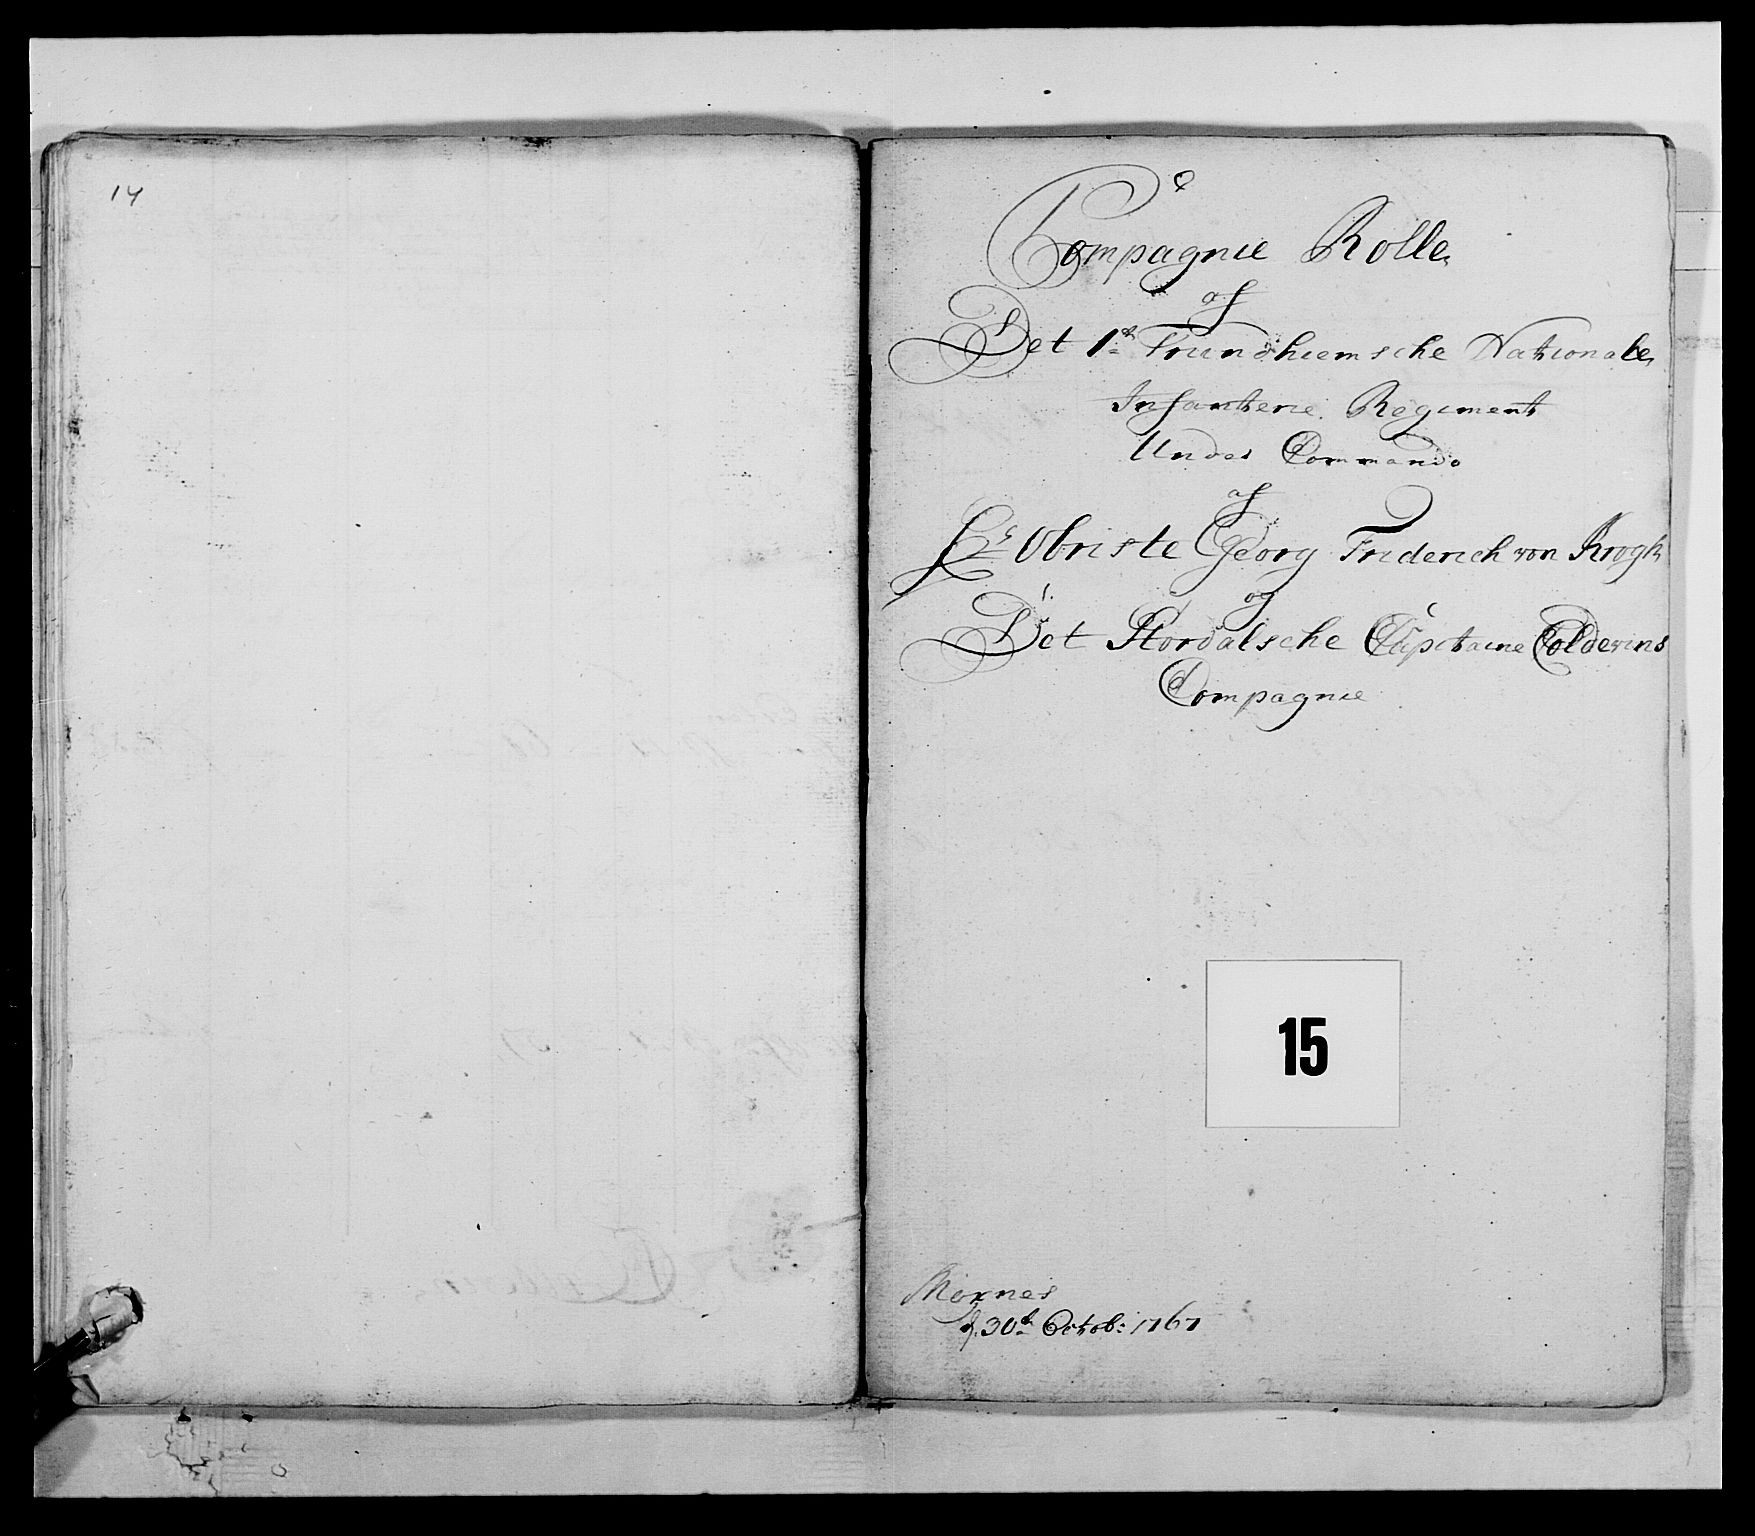 14
Compagnie Rolle
af
Det 1te Trundhiemsche Nationale
Infanterie Regiment
Under Commando
af
Hr Obriste Georg Friderich von Krogh
og
Det Stordalsche Capitaine Coldevins
Compagnie
15
d. 30te Octob: 1767